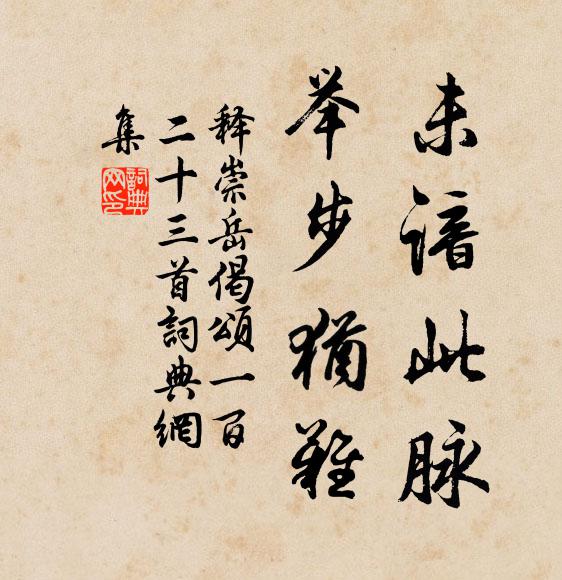 未谙此脉
举步犹难
释崇岳偈颂一百
二十三首詞典網
集
詞典
网印